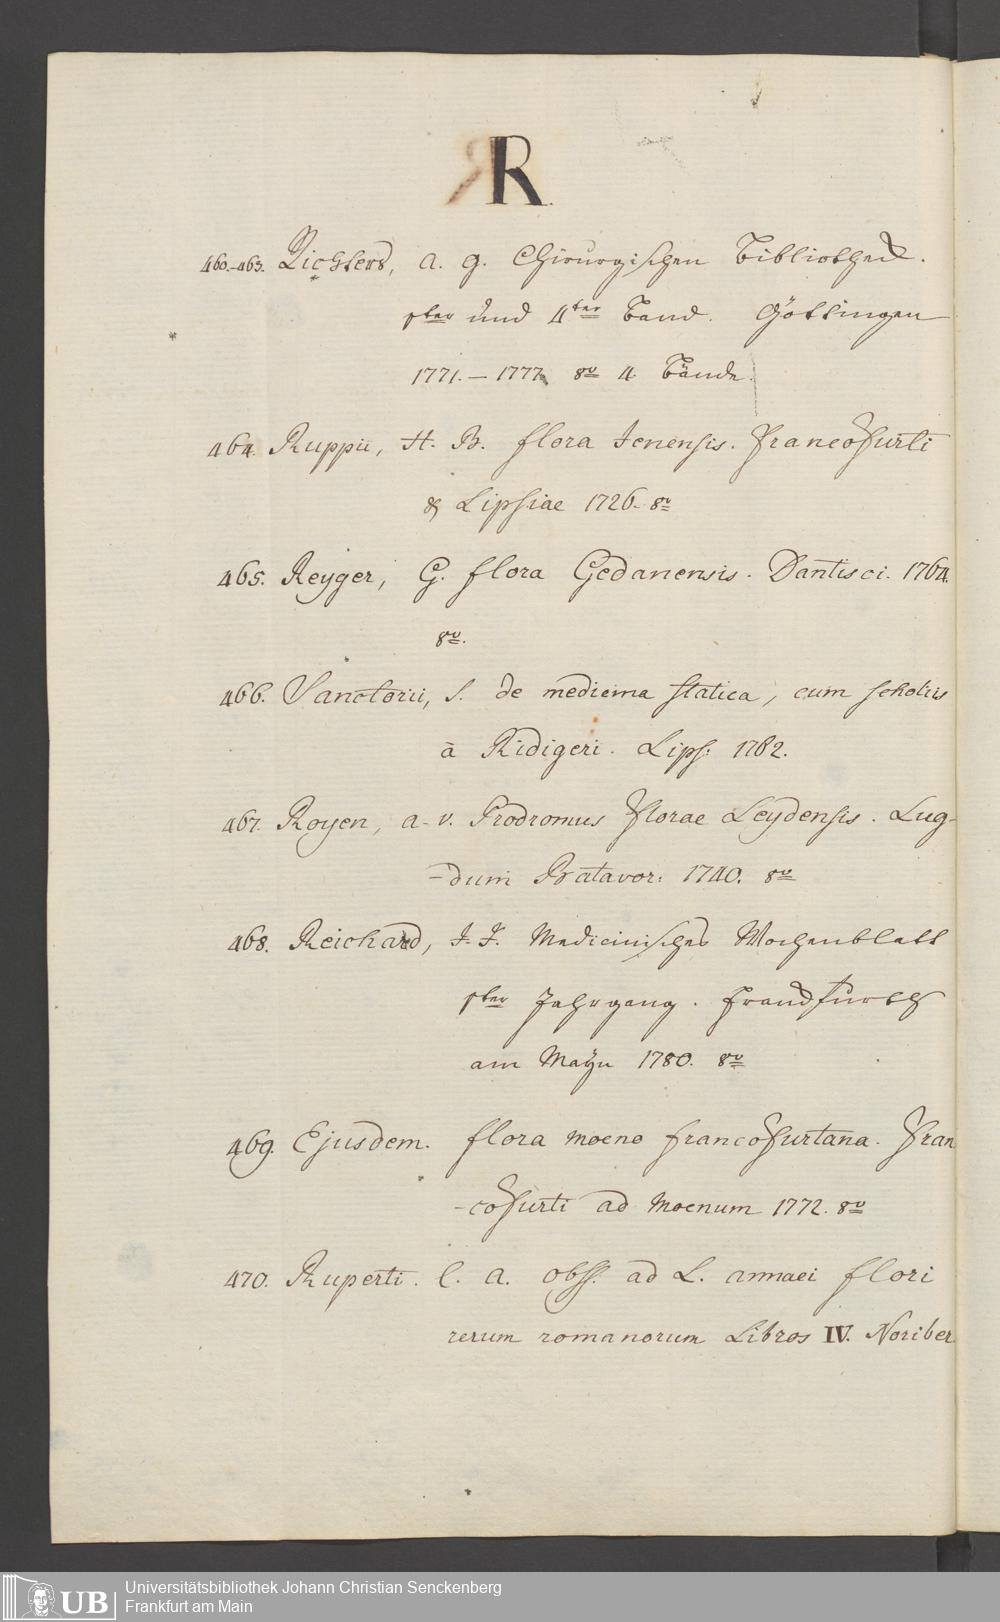 R.
460.-463. Richters, A. G. Chirurgischen Bibliotheck.
1ster und 4ter Band. Göttingen
1771.-1777. 8vo 4. Bände.
464. Ruppii, H. B. flora Jenensis. Francofurti
& Lipsiae 1726. 8vo
465. Reyger, G. flora Gedanensis. Dantisci. 1764.
8vo.
466. Sanctorii, S. de medicina statica, cum scholiis
à Ridigeri. Lips: 1762.
467. Royen, a. v. Prodromus Florae Leydensis. Lug-
-dum Batavor: 1740. 8vo
468. Reichard, J. J. Medicinisches Wochenblatt
1ster Jahrgang. Franckfurth
am Mayn 1780. 8vo
469. Ejusdem. flora moeno francofurtana. Fran
-cofurti ad Moenum 1772. 8vo
470. Ruperti. C. A. obs. ad L. annaei flori
rerum romanorum Libros IV. Noriber
UB
Universitätsbibliothek Johann Christian Senckenberg
Frankfurt am Main